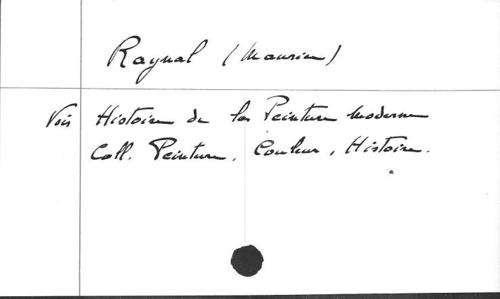 Raynal (Maurice)
Voir Histoire de la Peinture Moderne
Coll. Peinture, Couleur, Histoire.